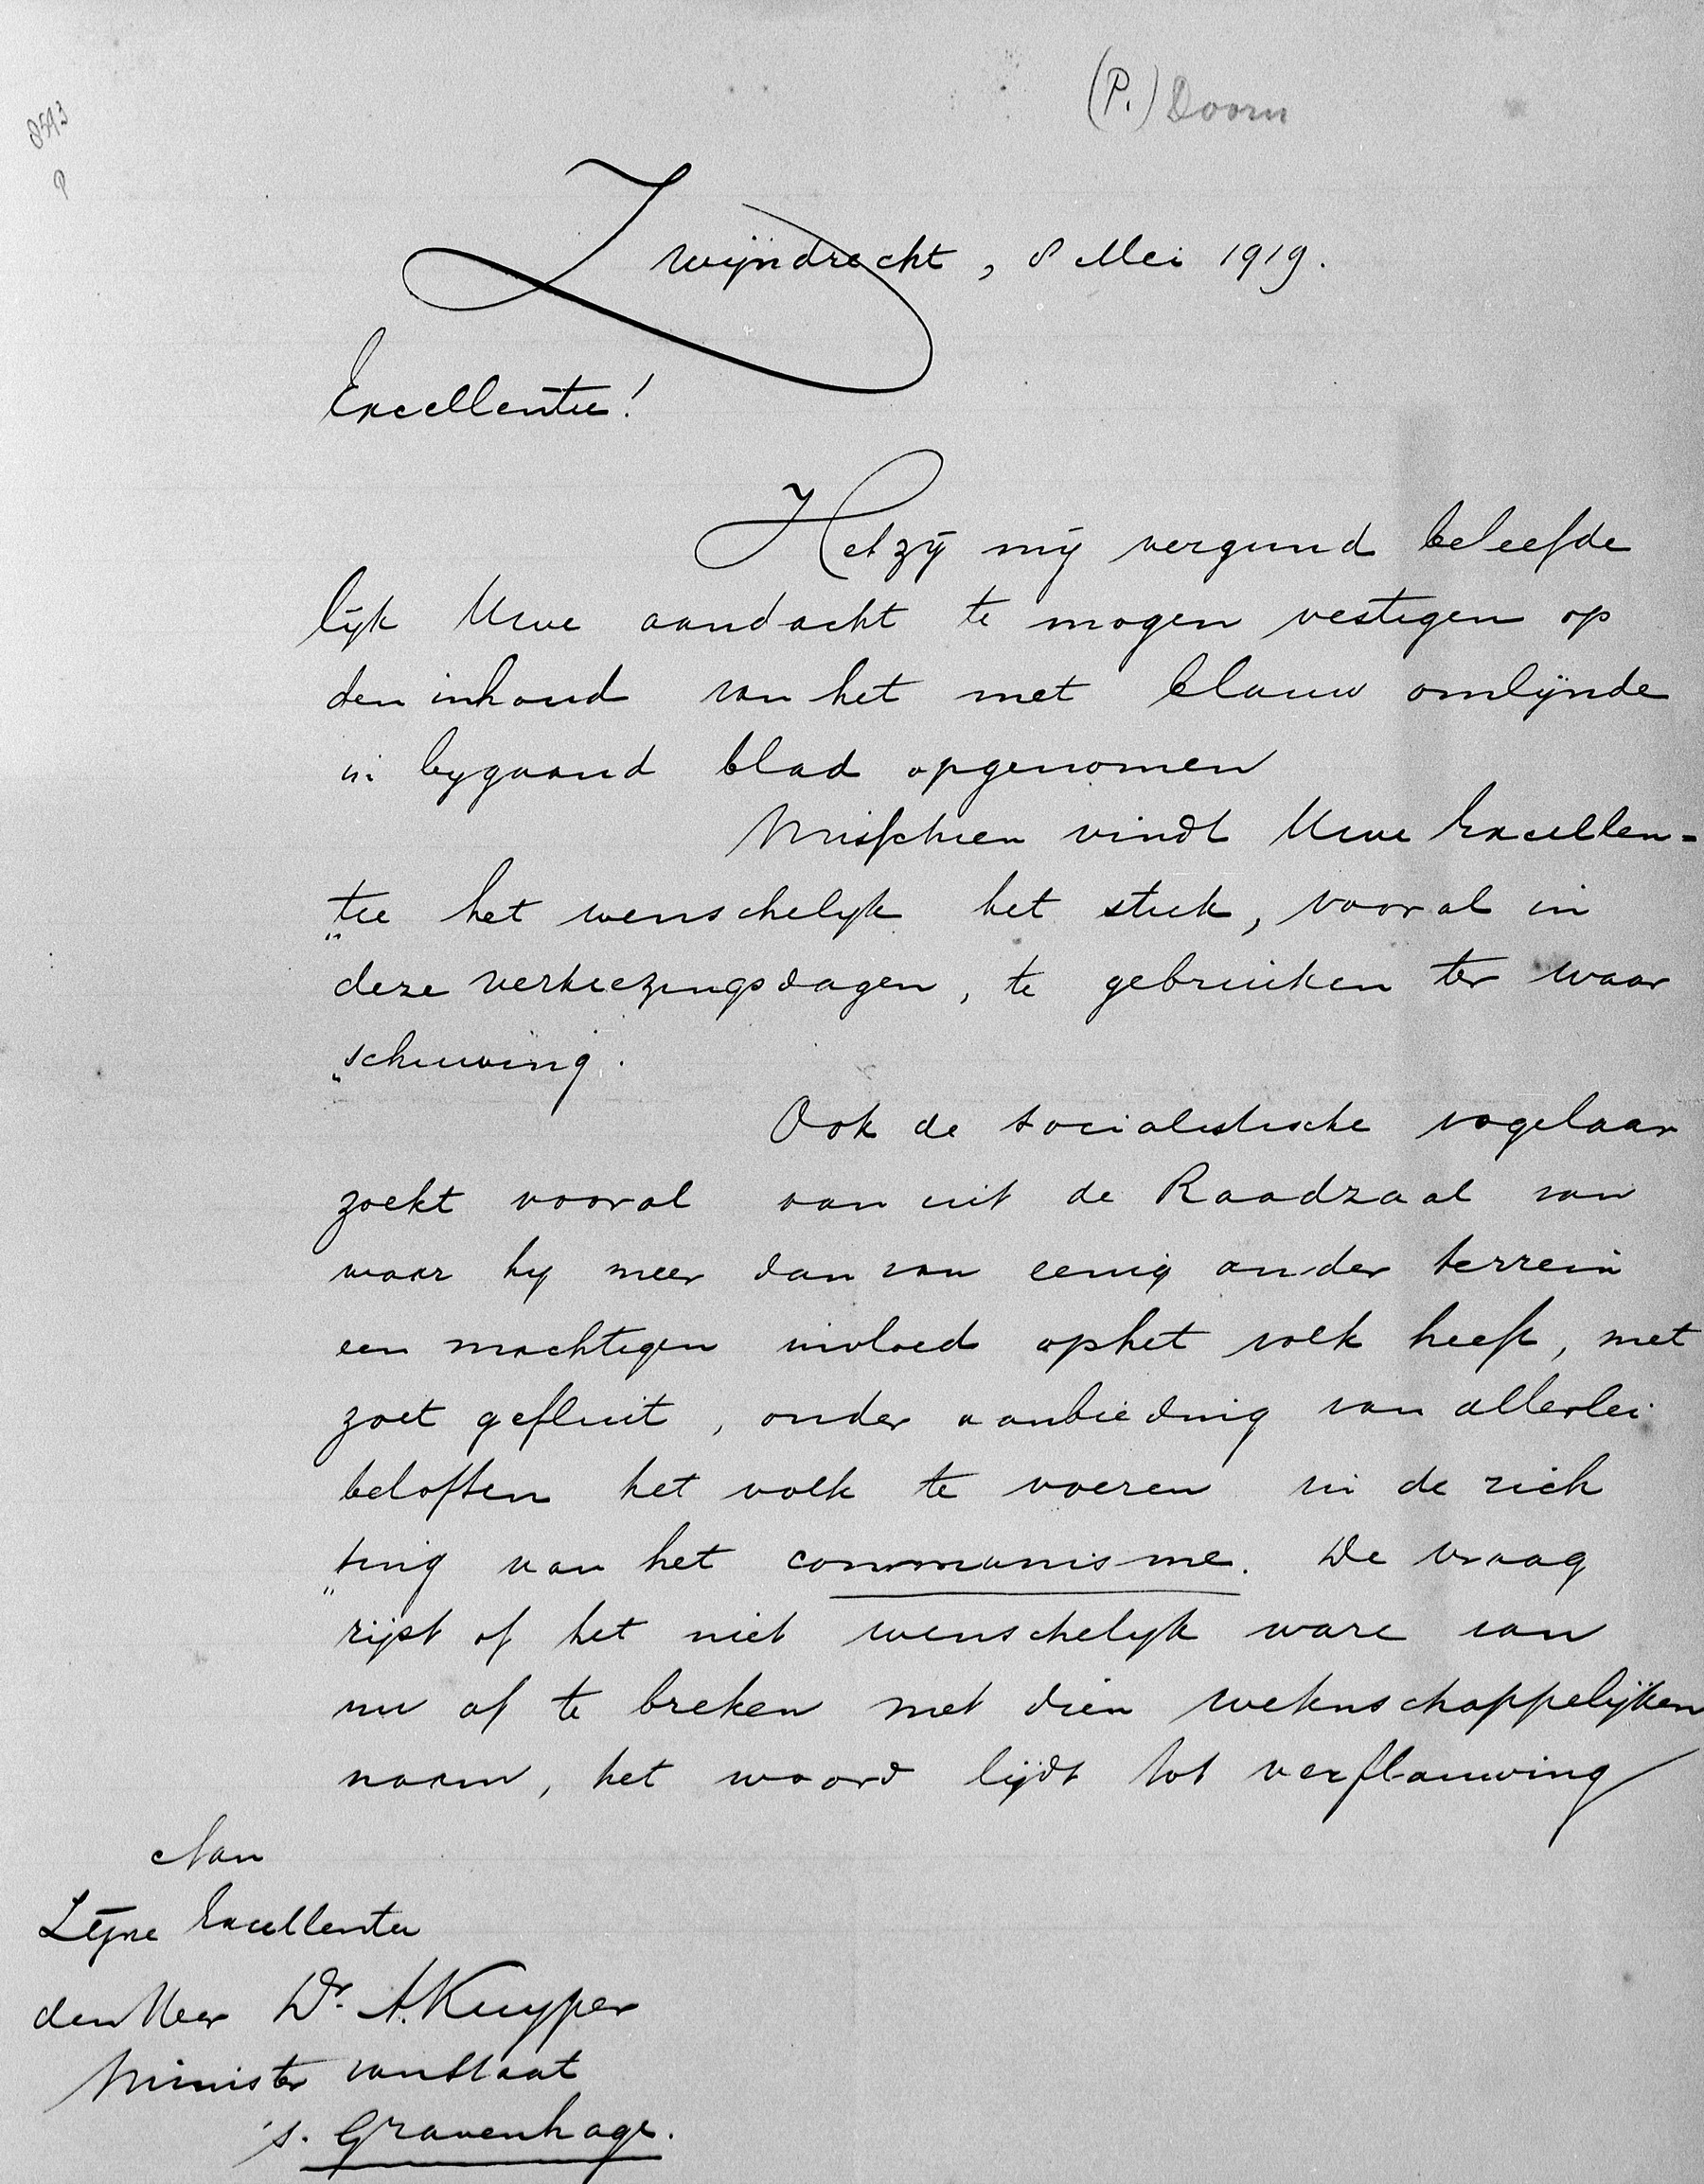 (P.) Doorn
8593
P
Zwijndrecht, 8 Mei 1919.
Excellentie!
Het zij mij vergund beleefde
lijk Uwe aandacht te mogen vestigen op
den inhoud van het met blauw omlijnde
in bygaand blad opgenomen
Misschien vindt Uwe Excellen=
„tie het wenschelyk het stuk, vooral in
deze verkiezingsdagen, te gebruiken ter waar
„schuwing.
Ook de socialistische vogelaar
zoekt vooral van uit de Raadzaal van
waar hy meer dan van eenig ander terrein
een machtigen invloed op het volk heeft, met
zoet gefluit, onder aanbieding van allerlei
beloften het volk te voeren in de rich
„ting van het communisme. De vraag
rijst of het niet wenschelyk ware van
nu af te breken met dien wetenschappelijken
naam, het woord lijdt tot verflauwing
Aan
Zijne Excellentie
den Heer Dr. A. Kuyper
Minister van Staat
's. Gravenhage.